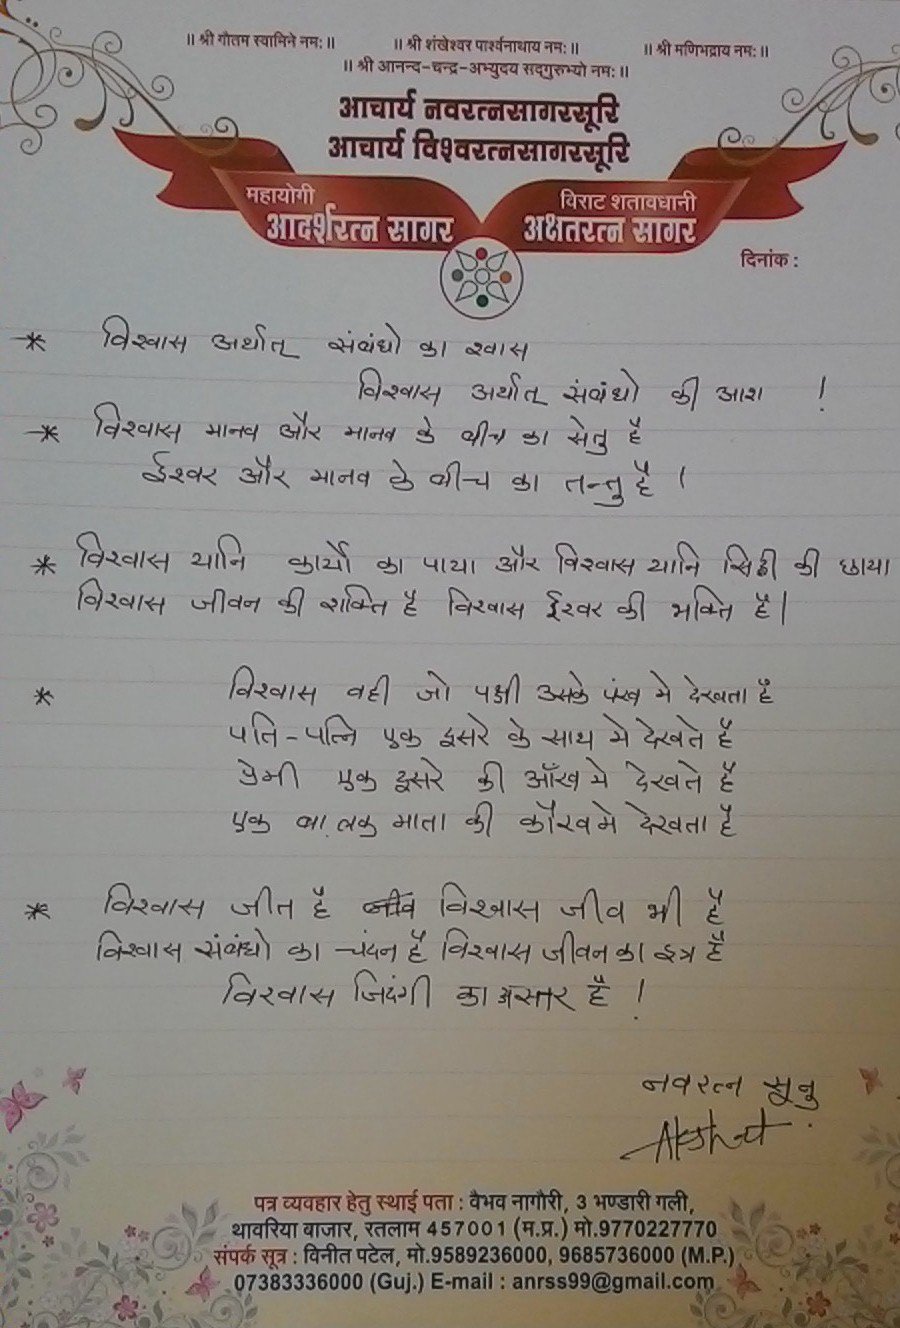 ॥ श्री गौतम स्वामिने नमः॥ ॥ श्री शंखेश्वर पार्श्वनाथाय नमः॥ ॥ श्री मणिभद्राय नमः॥
॥ श्री आनन्द-चन्द्र-अभ्युदय सद्‌गुरुभ्यो नमः॥
आचार्य नवरत्नसागरसूरि
आचार्य विश्वरत्नसागरसूरि
महायोगी विराट शतावधानी
आदर्शरत्न सागर अक्षतरत्न सागर
दिनांक :
* विश्वास अर्थात् संबंधो का श्वास
विश्वास अर्थात् संबंधो की आश !
* विश्वास मानव और मानव के बीच का सेतु है
ईश्वर और मानव के बीच का तन्तु है ।
* विश्वास यानि कार्यो का पाया और विश्वास यानि सिद्दी की छाया
विश्वास जीवन की शक्ति है विश्वास ईश्वर की भक्ति है।
* विश्वास वही जो पक्षी उसके पंख मे देखता है
पति-पत्नि एक दुसरे के साथ मे देखते है
प्रेमी एक दुसरे की आँख मे देखते है
एक बालक माता की कौख मे देखता है
* विश्वास जीत है विश्वास जीव भी है
विश्वास संबंधो का चंदन है विश्वास जीवन का इत्र है
विश्वास जिदंगी का अस्तर है !
नवरत्न सूनु
Akshat
पत्र व्यवहार हेतु स्थाई पता : वैभव नागौरी, 3 भण्डारी गली,
थावरिया बाजार, रतलाम 457001 (म.प्र.) मो.9770227770
संपर्क सूत्र : विनीत पटेल, मो.9589236000, 9685736000 (M.P.)
07383336000 (Guj.) E-mail : anrss99@gmail.com